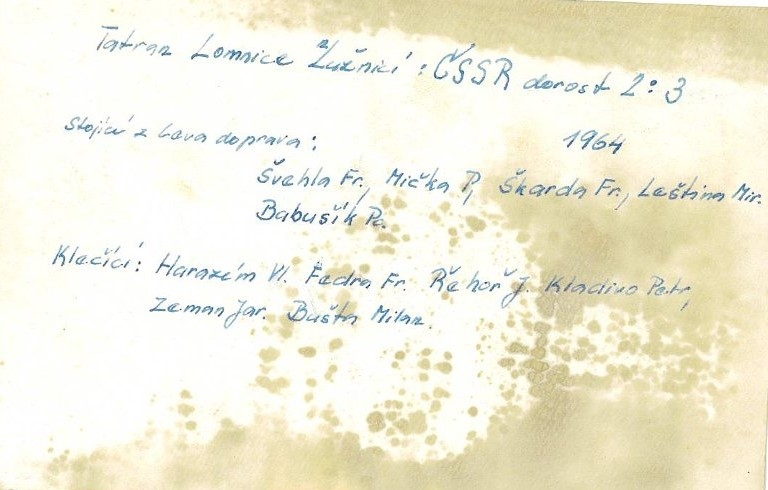 Tatran Lomnice n/Lužnicí : ČSSR dorost 2:3
1964
Stojící z leva doprava :
Švehla Fr., Mička P., Škarda Fr., Leština Mir.
Babušík Pa.
Klečící: Harazém Vl. Fedra Fr. Řehoř J. Kladivo Petr,
Zeman Jar. Bušta Milan.